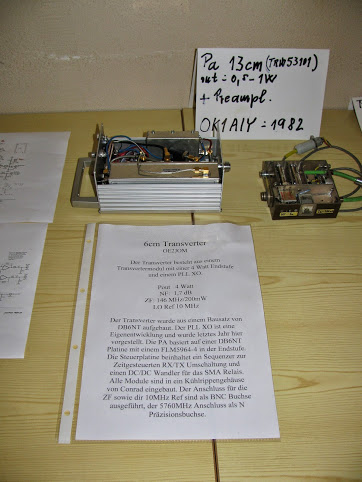 Pa 13cm (TRW53101)
out = 0,5 - 1W
+ Preampl.
OK1AIY = 1982
6cm Transverter
OE2JOM
Der Transverter besteht aus einem
Transvertermodul mit einer 4 Watt Endstufe
und einem PLL XO.
Pout : 4 Watt
NF: 1,7 dB
ZF: 146 MHz/200mW
LO Ref 10 MHz
Der Transverter wurde aus einem Bausatz von
DB6NT aufgebaut. Der PLL XO ist eine
Eigenentwicklung und wurde letztes Jahr hier
vorgestellt. Die PA basiert auf einer DB6NT
Platine mit einem FLM5964-4 in der Endstufe.
Die Steuerplatine beinhaltet ein Sequenzer zur
Zeitgesteuerten RX/TX Umschaltung und
einen DC/DC Wandler für das SMA Relais.
Alle Module sind in ein Kühlrippengehäuse
von Conrad eingebaut. Der Anschluss für die
ZF sowie dir 10MHz Ref sind als BNC Buchse
ausgeführt, der 5760MHz Anschluss als N
Präzisionsbuchse.